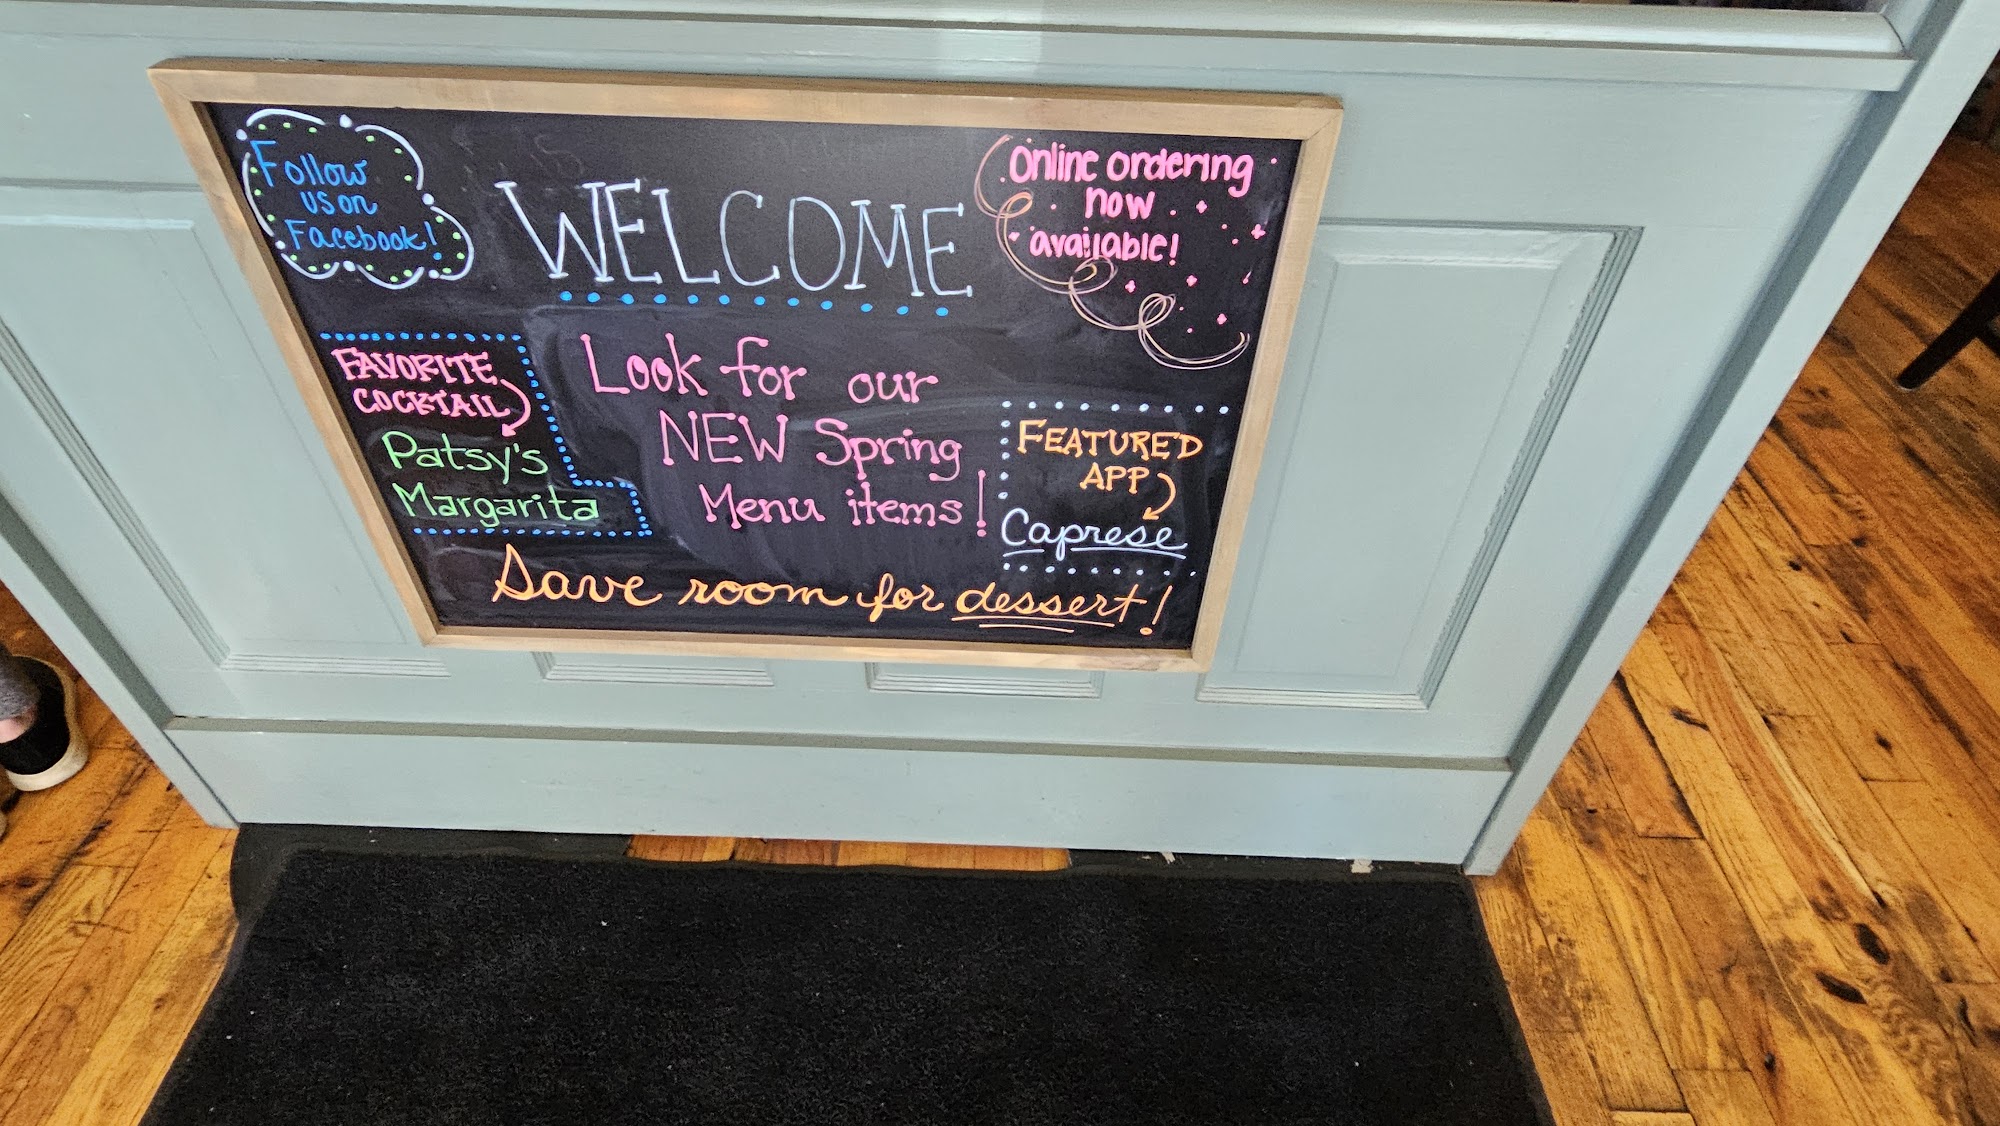 Follow
us on
Facebook!
WELCOME
Online ordering
now
available!
FAVORITE
COCKTAIL
Patsy's
Margarita
Look for our
NEW Spring
Menu items!
FEATURED
APP
Caprese
Save room for dessert!